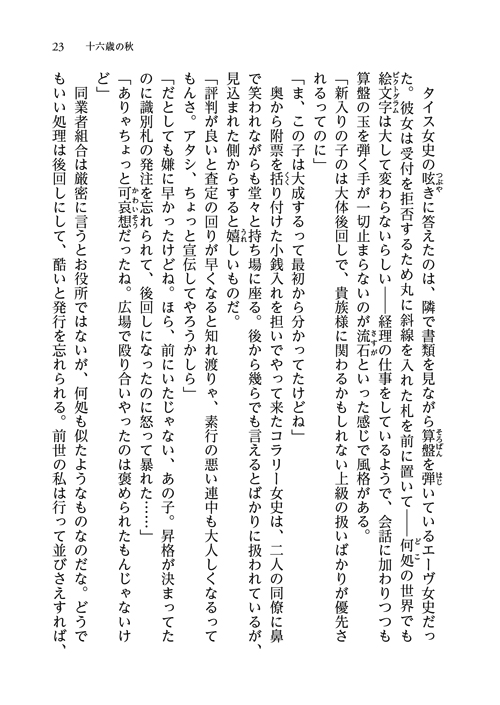 23　十六歳の秋
　タイス女史の呟きに答えたのは、隣で書類を見ながら算盤を弾いているエーヴ女史だっ
た。彼女は受付を拒否するため丸に斜線を入れた札を前に置いて――何処の世界でも
絵文字は大して変わらないらしい――経理の仕事をしているようで、会話に加わりつつも
算盤の玉を弾く手が一切止まらないのが流石といった感じで風格がある。
「新入りの子のは大体後回しで、貴族様に関わるかもしれない上級の扱いばかりが優先さ
れるってのに」
「ま、この子は大成するって最初から分かってたけどね」
　奥から附票を括り付けた小銭入れを担いでやって来たコラリー女史は、二人の同僚に鼻
で笑われながらも堂々と持ち場に座る。後から幾らでも言えるとばかりに扱われているが、
見込まれた側からすると嬉しいものだ。
「評判が良いと査定の回りが早くなると知れ渡りゃ、素行の悪い連中も大人しくなるって
もんさ。アタシ、ちょっと宣伝してやろうかしら」
「だとしても嫌に早かったけどね。ほら、前にいたじゃない、あの子。昇格が決まってた
のに識別札の発注を忘れられて、後回しになったのに怒って暴れた……」
「ありゃちょっと可哀想だったね。広場で殴り合いやったのは褒められたもんじゃないけ
ど」
　同業者組合は厳密に言うとお役所ではないが、何処も似たようなものなのだな。どうで
もいい処理は後回しにして、酷いと発行を忘れられる。前世の私は行って並びさえすれば、